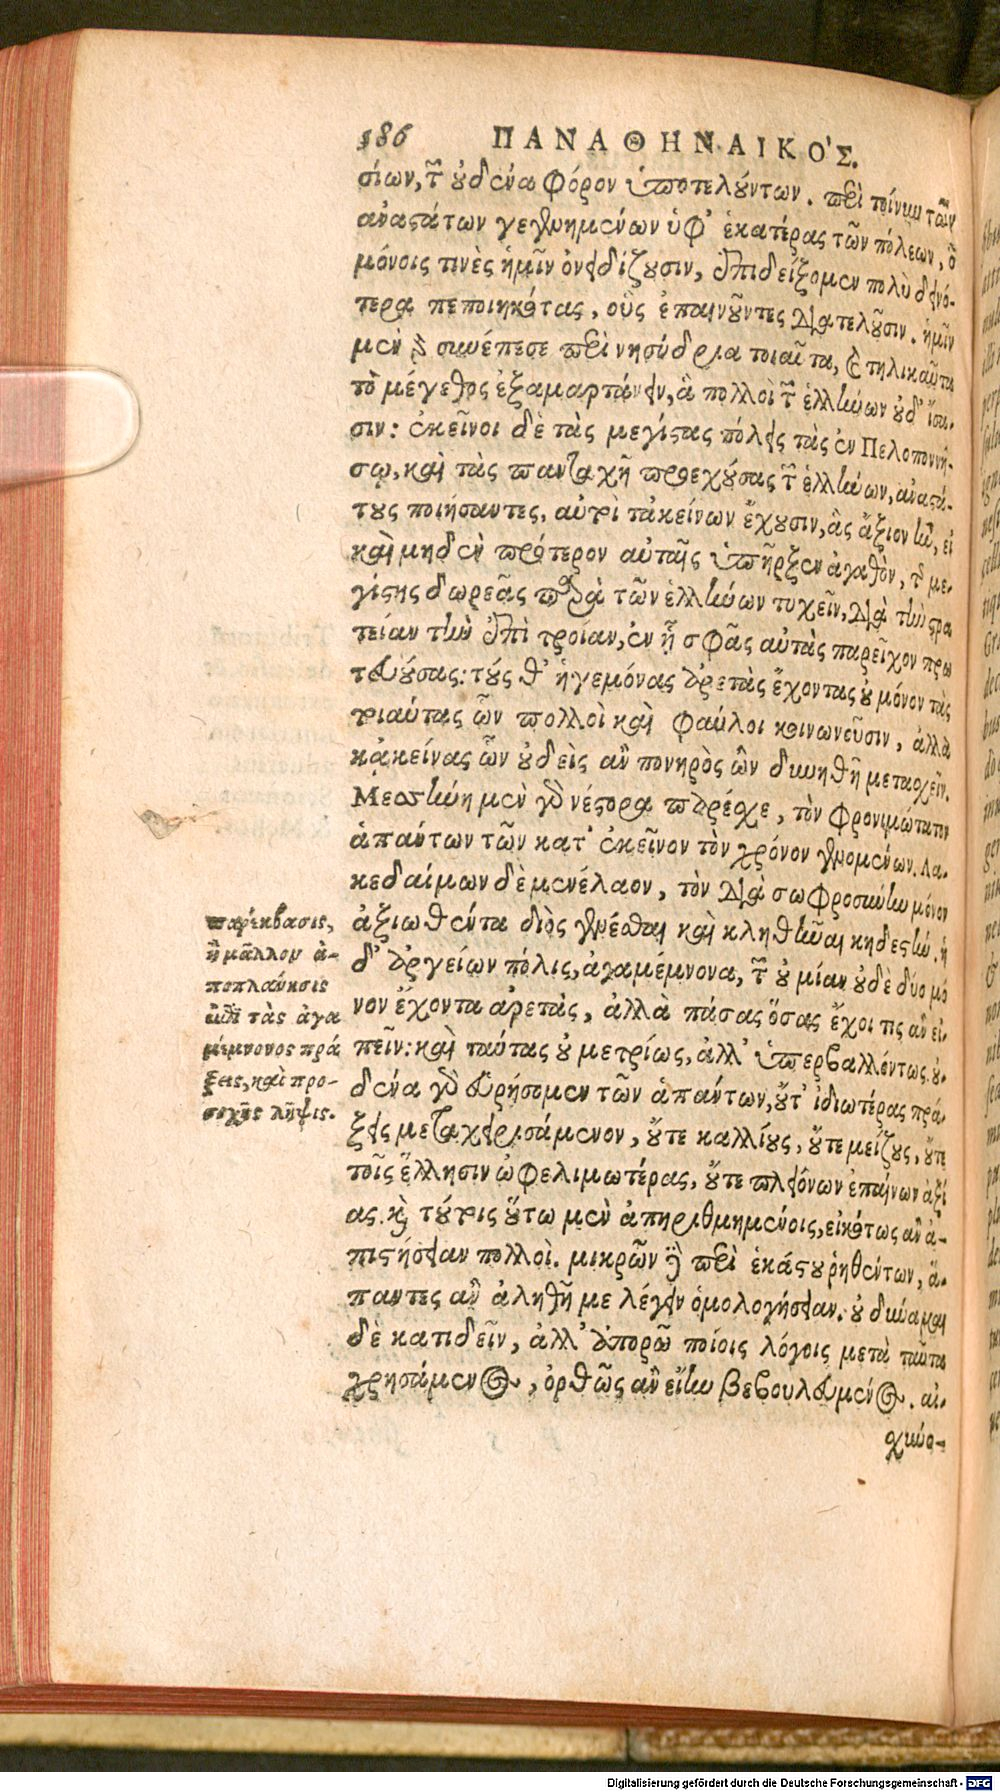 186 ΠΑΝΑΘΗΝΑΙΚΟ'Σ.
σίων, τ῀ οὐδένα φόρον ὑποτελούντων. περὶ τοίνυν τῶν
ἀναστάτων γεγενημένων ὑφ' ἑκατέρας τῶν πόλεων, ὃ
μόνοις τινὲς ἡμῖν ὀνειδίζουσιν, ἐπιδείξομεν πολὺ δεινό-
τερα πεποιηκότας, οὓς ἐπαινοῦντες διατελοῦσιν. ἡμῖν
μὲν γδ συνέπεσε περὶ νησύδρια τοιαῦτα, καὶ τηλικαῦτα
τὸ μέγεθος ἐξαμαρτάνειν, ἃ πολλοὶ τῶν ἑλλήνων οὐδ' ἴσα-
σιν: ἐκεῖνοι δὲ τὰς μεγίστας πόλεις τὰς ἐν Πελοποννή-
σῳ, καὶ τὰς πανταχῆ προεχούσας τῶν ἑλλήνων, ἀναστά-
τους ποιήσαντες, αὐτοὶ τἀκείνων ἔχουσιν, ἃς ἄξιον ἦν, εἰ
καὶ μηδὲν πρότερον αὐταῖς ὑπῆρξεν ἀγαθὸν, τῆς με-
γίστης δωρεᾶς παρὰ τῶν ἑλλήνων τυχεῖν, διὰ τὴν στρα
τείαν τὴν ἐπὶ τροίαν, ἐν ᾗ σφᾶς αὐτὰς παρεῖχον πρω
τευούσας: τούς θ' ἡγεμόνας ἀρετὰς ἔχοντας οὐ μόνον τὰς
τοιαύτας ὧν πολλοὶ καὶ φαύλοι κοινωνοῦσιν, ἀλλὰ
κἀκείνας ὧν οὐδεὶς ἂν πονηρὸς ὢν δυνηθῆ μετασχεῖν.
Μεσσήνη μὲν γδ νέστορα παρέσχε, τὸν φρονιμώτατον
ἁπάντων τῶν κατ' ἐκεῖνον τὸν χρόνον γενομένων. Λα-
κεδαίμων δὲ μενέλαον, τὸν διὰ σωφροσύνην μόνον
ἀξιωθέντα διὸς γενέσθαι καὶ κληθῆναι κηδεστήν. ἡ
δ' ἀργείων πόλις, ἀγαμέμνονα, τὸν οὐ μίαν οὐδὲ δύο μό
νον ἔχοντα ἀρετὰς, ἀλλὰ πάσας ὅσας ἔχοι τις ἂν εἰ-
πεῖν: καὶ ταύτας οὐ μετρίως, ἀλλ' ὑπερβαλλόντως. οὐ-
δένα γδ εὑρήσομεν τῶν ἁπάντων, οὔτ' ἰδιωτέρας πρά-
ξεις μεταχειρισάμενον, οὔτε καλλίους, οὔτε μείζους, οὔτε
τοῖς ἕλλησιν ὠφελιμωτέρας, οὔτε πλειόνων ἐπαίνων ἀξί
ας. καὶ τούτοις οὕτω μὲν ἀπηριθμημένοις, εἰκότως ἂν ἀ-
πιστήσειαν πολλοὶ. μικρῶν δὲ περὶ ἑκάστου ῥηθέντων, ἅ-
παντες ἂν ἀληθῆ με λέγειν ὁμολογήσειαν. οὐ δύναμαι
δὲ κατιδεῖν, ἀλλ' ἀπορῶ ποίοις λόγοις μετὰ ταῦτα
χρησάμενος, ὀρθῶς ἂν εἴην βεβουλευμένος. αἰ-
σχύνο-
παρέκβασις,
ἢ μᾶλλον ἀ-
ποπλάνησις
ἐπὶ τὰς ἀγα
μέμνονος πρά
ξεις, καὶ προ-
σοχῆς λῆψις.
Digitalisierung gefördert durch die Deutsche Forschungsgemeinschaft - DFG